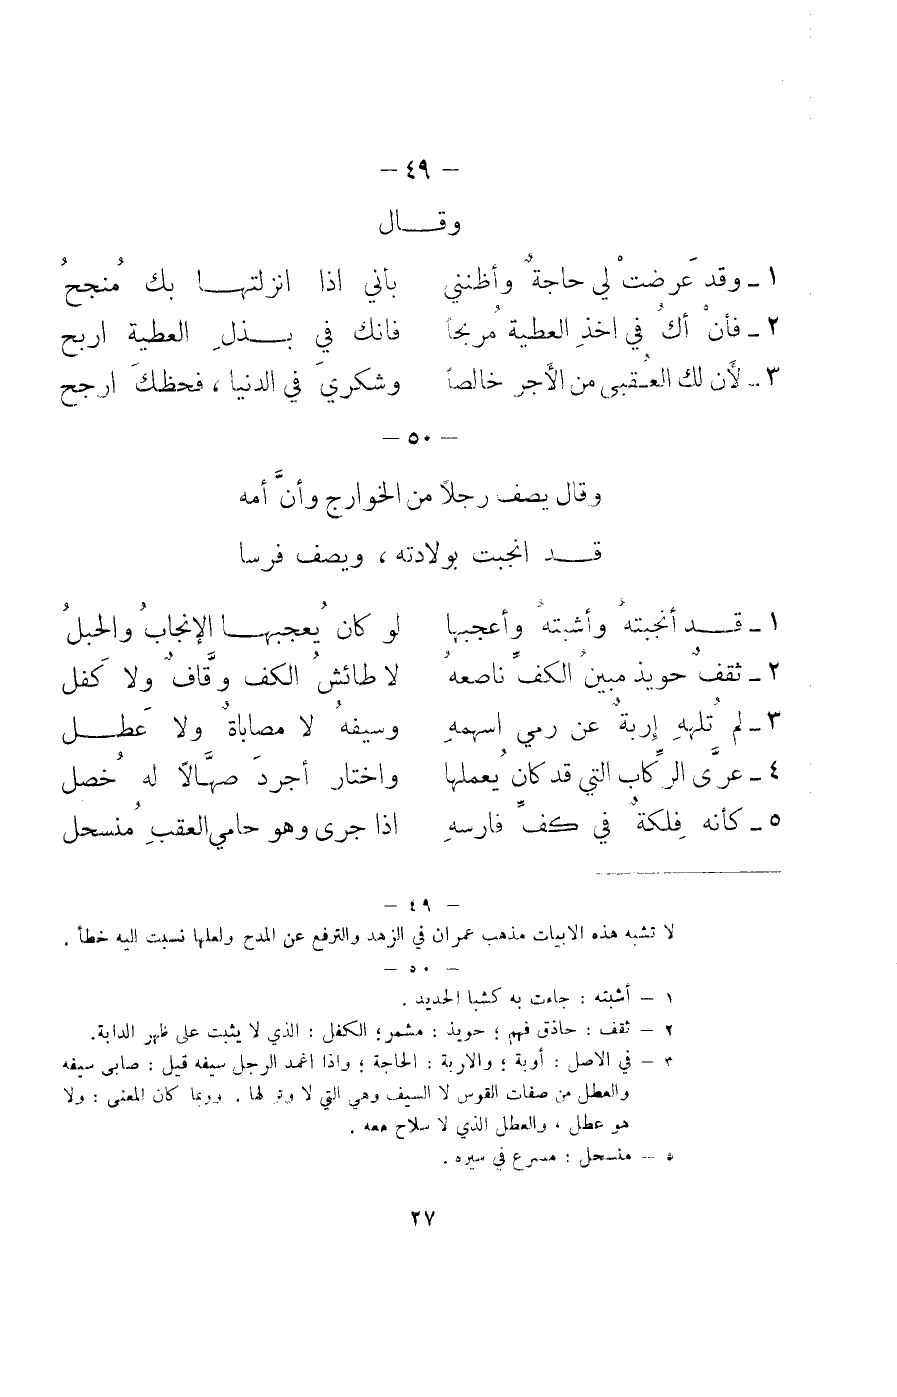 – ٤٩ –
وقـــال
١ – وقد عَرضتْ لي حاجةٌ وأظنني بأني اذا انزلتهـــا بك مُنجحُ
٢ – فأنْ أكُ في اخذِ العطية مُربحاً فانك في بـــذلِ العطية اربحُ
٣ – لأن لك العُـقبى من الأجرِ خالصاً وشكريَ في الدنيا ، فحظكَ ارجح
– ٥٠ –
وقال يصف رجلاً من الخوارج وأنَّ أمه
قـــد انجبت بولادته ، ويصف فرسا
١ – قـــد أنجبتهُ وأشبتهُ وأعجبها لو كان يُعجبهـــا الإنجابُ والحبلُ
٢ – ثقفٌ حويذ مبينُ الكفِّ ناصعهُ لا طائشُ الكف وقَّافٌ ولا كَفل
٣ – لم تُلهِهِ إربةٌ عن رمي اسهمهِ وسيفهُ لا مصاباةٌ ولا عَطـــل
٤ – عرَّى الركّاب التي قد كان يُعملها واختار أجردَ صهَّالاً له خُصل
٥ – كأنه فِلكةٌ في كفِّ فارسهِ اذا جرى وهو حامي العقبِ مُنسحل
– ٤٩ –
لا تشبه هذه الابيات مذهب عمران في الزهد والترفع عن المدح ولعلها نسبت اليه خطأ .
– ٥٠ –
١ – أشبته : جاءت به كشبا الحديد .
٢ – ثقف : حاذق فهم ؛ حويذ : مشمر ؛ الكفل : الذي لا يثبت على ظهر الدابة.
٣ – في الاصل : أوبة ؛ والاربة : الحاجة ؛ واذا اغمد الرجل سيفه قيل : صابى سيفه
والعطل من صفات القوس لا السيف وهي التي لا وتر لها . وربما كان المعنى : ولا
هو عطل ، والعطل الذي لا سلاح معه .
٥ – منسحل : مسرع في سيره .
٢٧